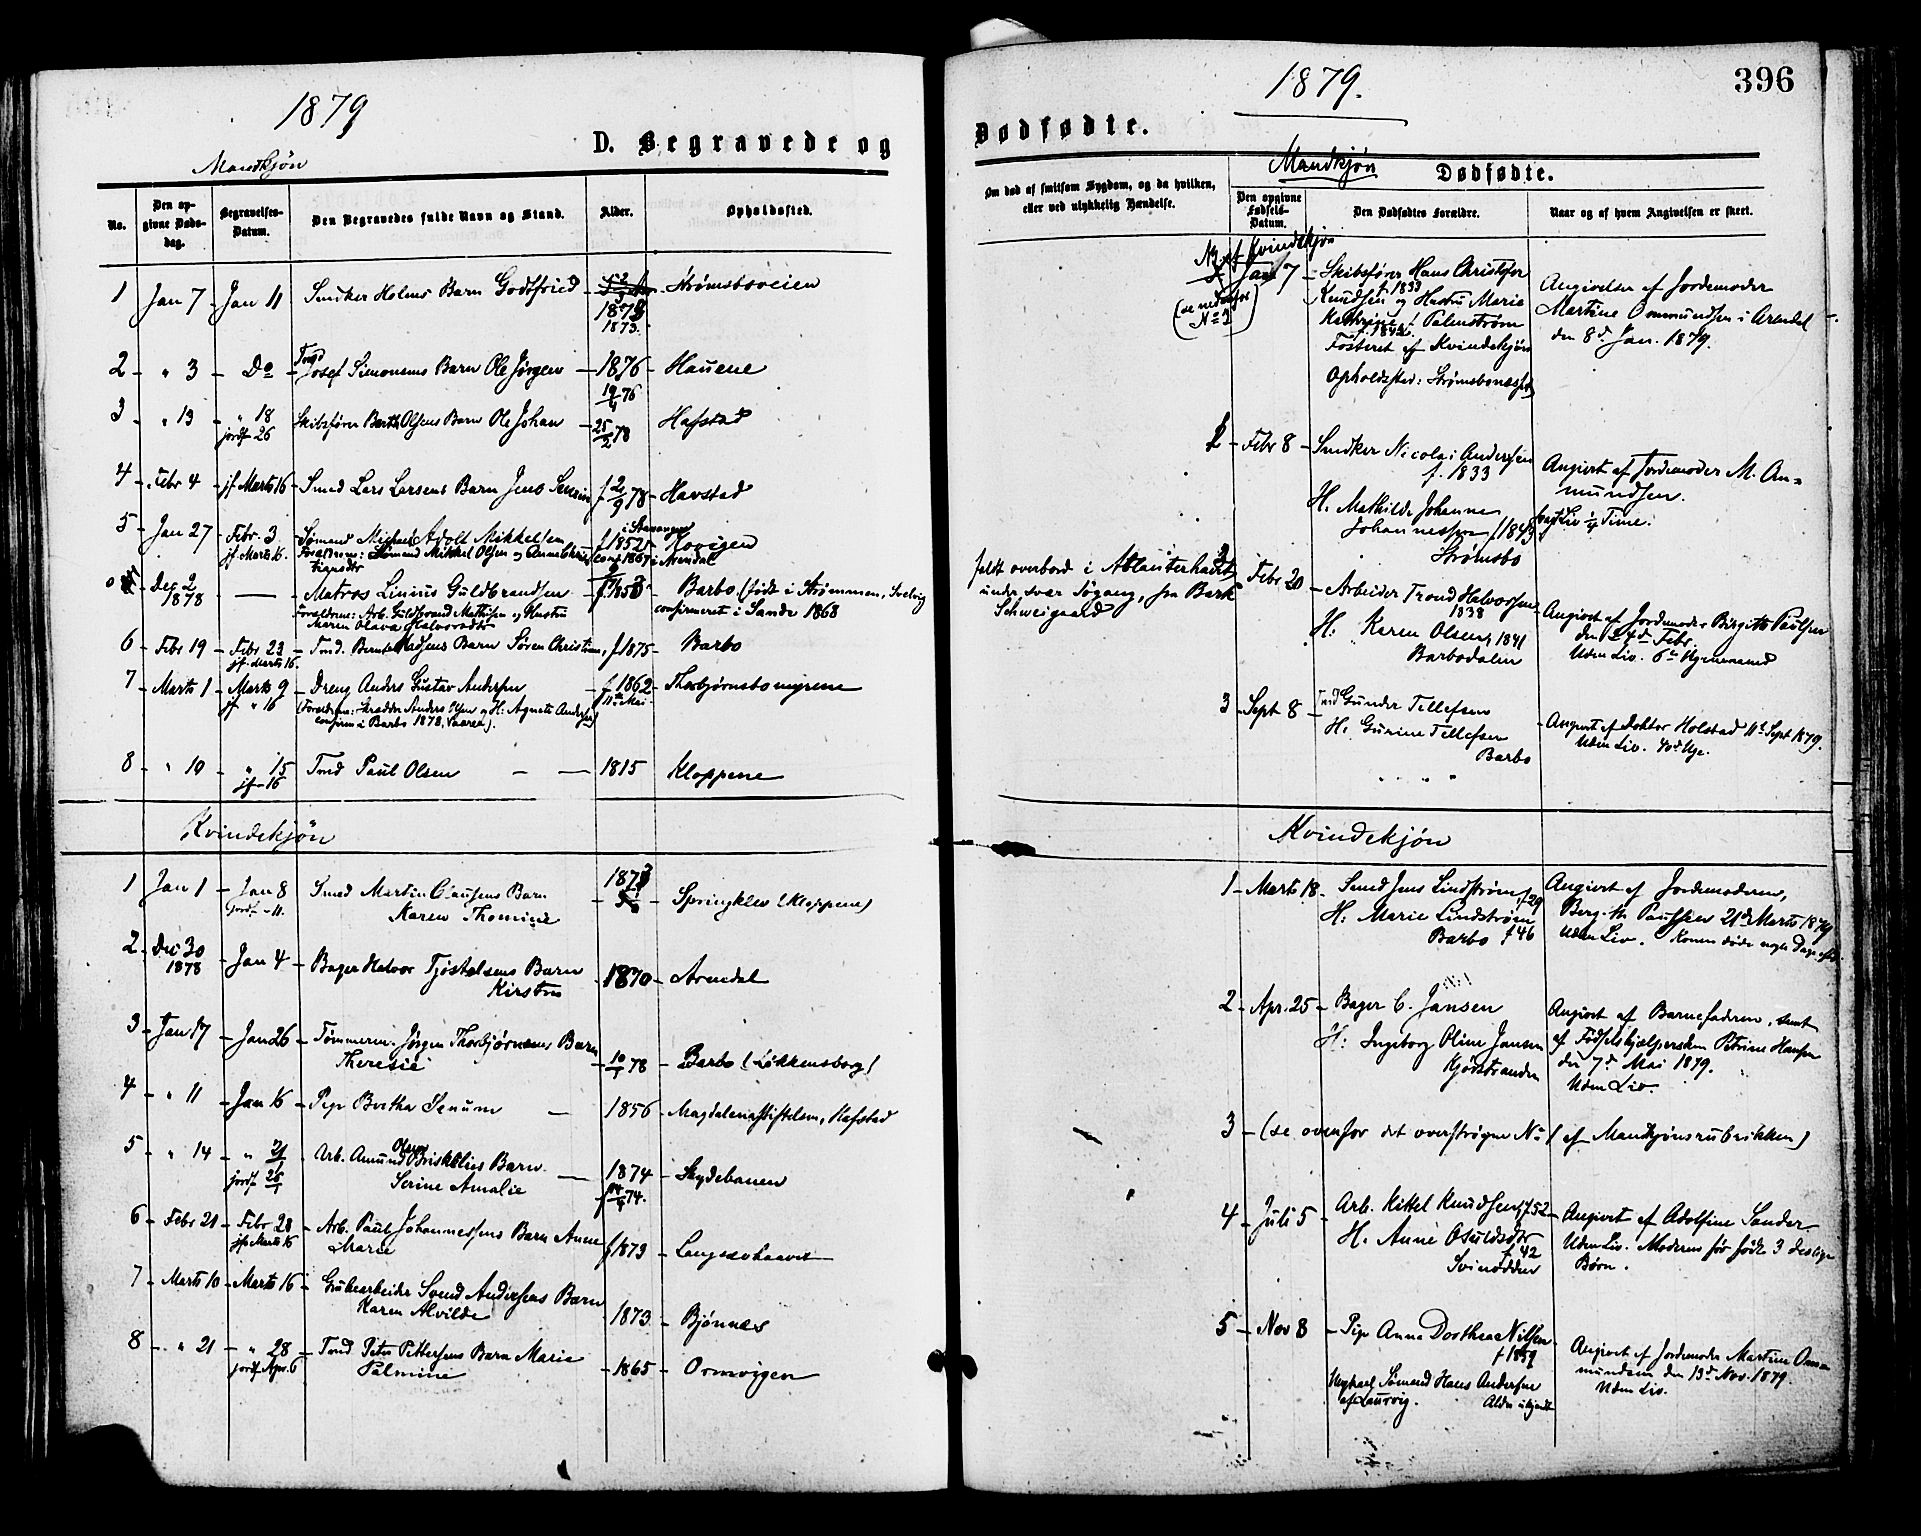 1879
D. Begravede og
Mandkjøn
No.
Den opgivne Dødsdag.
Begravelses-Datum.
Den Begravedes fulde Navn og Stand.
Alder.
Opholdssted.
1 Jan 7 - Jan 11 Snedker Holms Barn Godtfried - 1873. - Strømsboveien
2 - " 3 - Do - Tmd Josef Simonsens Barn Ole Jørgen - 1876 - Hauene
19/4 76
3 - " 13 - " 18 Skibsfører Olsens Barn Ole Johan - 25/2 78 Hafstad
jordf 26
4 - Febr 4 - jf Marts 16 - Smed Lars Larsens Barn Jens f 2/9 78 - Havstad
5 - Jan 27 - Febr. 3 - Sømand Michael Adolf Mikkelsen f 1852 i Stavanger - Hovigen
jf Marts 16. Forældrene: Sømand Mikkel Olsen og Anne conf. 1867 i Arendal
Dec 2 1878 — Matros Linius Guldbrandsen - f. 1853 - Barbo (født i Strømmen, Svelvig
Forældrene: Arb. Guldbrand Mathisen og Hustru confirmeret i Sande 1868
Maren Olava Halvorsdtr
6 - Febr 19 - Febr 23 - Tmd. Bernt Madsens Barn Søren Christian, f 1875 - Barbo
jf Marts 16.
7 - Marts 1 - Marts 9 - Dreng Anders Gustav Andersen - f 1862 - Thorbjørnsbomyrene
jf " 16 (Forældrene: Skrædder Anders og H: Agnete Andersen 11te Mai
confirm i Barbo 1878, Vaaren).
8 - " 10 - " 15 Tmd Paul Olsen — — 1815 - Kloppene
jf - 16
Kvindekjøn
1 Jan 1 - Jan 8 Smed Martin Clausens Barn 1873 - Springklev (Kloppene)
Jordf - 11. Karen Thomine
2 - Dec 30 1878 - Jan 4 - Bager Halvor Tjøstelsens Barn 1870 - Arendal
Kirsten
3 - Jan 17 - Jan 26 - Tømmerm. Jørgen Thorbjørnsens Barn
Theresie - 10/1 78 - Barbo (Løkkensborg)
4 - " 11 - Jan 16 - Pige Bertha Senum — 1856 - Magdalenastiftelsen, Hafstad
5 - " 14 - " 21/1 Arb. Amund Olsen Briskelies Barn — 1874 - Skydebanen
jordf 26/1 Serine Amalie
6 - Febr 21 - Febr 28 - Arb. Paul Johannessens Barn Anne
jf Marts 16 Marie f 1873 - Langsævhaavet
7 - Marts 10 - Marts 16 - Grubearbeider Svend Andersens Barn
Karen Alvilde 1873 - Bjønnes
8 - " 21 - " 28 - Tmd Peter Pettersens Barn Marie
jordf Apr. 6 Palmine - 1865 - Ormvigen
1879.
396
Dødfødte.
Mandkjøn
Dødfødte.
Om død af smitsom Sygdom, og da hvilken,
eller ved ulykkelig Hændelse.
Den opgivne Fødsels-Datum.
Den Dødfødtes Forældre.
Naar og af hvem Angivelsen er skeet.
Kvindekjøn
Jan 7 - Skibsfører Hans Christopher
f. 1833
Knudsen og Hustru Marie
Kathrine f. Palmstrøm
f. 1842
Fosteret af Kvindekjøn
Opholdssted: Strømsbonæsset
(se nedenfor
No 3)
Angivelse af Jordemoder
Martine Ommundsen i Arendal
den 8d Jan. 1879.
1 - Febr 8 - Snedker Nicolai Andersen
f. 1833
H. Mathilde Johanne
Johannessen f 1843
Strømsbo
Angivet af Jordemoder M. Ommundsen.
havt Liv i ¼ Time.
faldt overbord i
under svær Søgang, fra Bark
Schweigaard
2 Febr 20 - Arbeider Trond Halvorsen
1838
H: Karen Olsen f 1841
Barbodalen
Angivet af Jordemoder Birgitte Paulsen
den 24d Febr.
Uden Liv.
3 - Sept 8 - Tmd Gunder Tellefsen
H. Gurine Tellefsen
Barbo
- Angivet af Doktor Holstad 11te Sept 1879.
Uden Liv. 40de Uge.
Kvindekjøn
1 - Marts 18 - Smed Jens Lindstrøm f 29
H: Marie Lindstrøm
Barbo f 46
Angivet af Jordemoderen,
Birgitte Paulsen 21de Marts 1879
Uden Liv. Konen døde nogle Dage efter.
2 - Apr. 25 - Bager C. Jansen
H: Ingeborg Oline Jansen
Kjødstranden
Angivet af Barnefaderen, samt
af Fødselshjælpersken Petrine Hansen
den 7d Mai 1879.
Uden Liv.
3 - (se ovenfor det overstrøgne No 1 af Mandkjønsrubrikken)
4 - Juli 5 - Arb. Kittel Knudsen f. 52
H. Anne Osuldsdtr
f. 42
Svinodden
Angivet af Adolfine Sander
Uden Liv. Moderen før født 3 deslige
Børn.
5 - Nov 8 - Pige Anna Dorthea Nilsen
f 1859
Ungkarl Sømand Hans Andersen
af Laurvig. Alder ukjendt
Angivet af Jordemoder Martine Ommundsen den 13d Nov. 1879
Uden Liv.